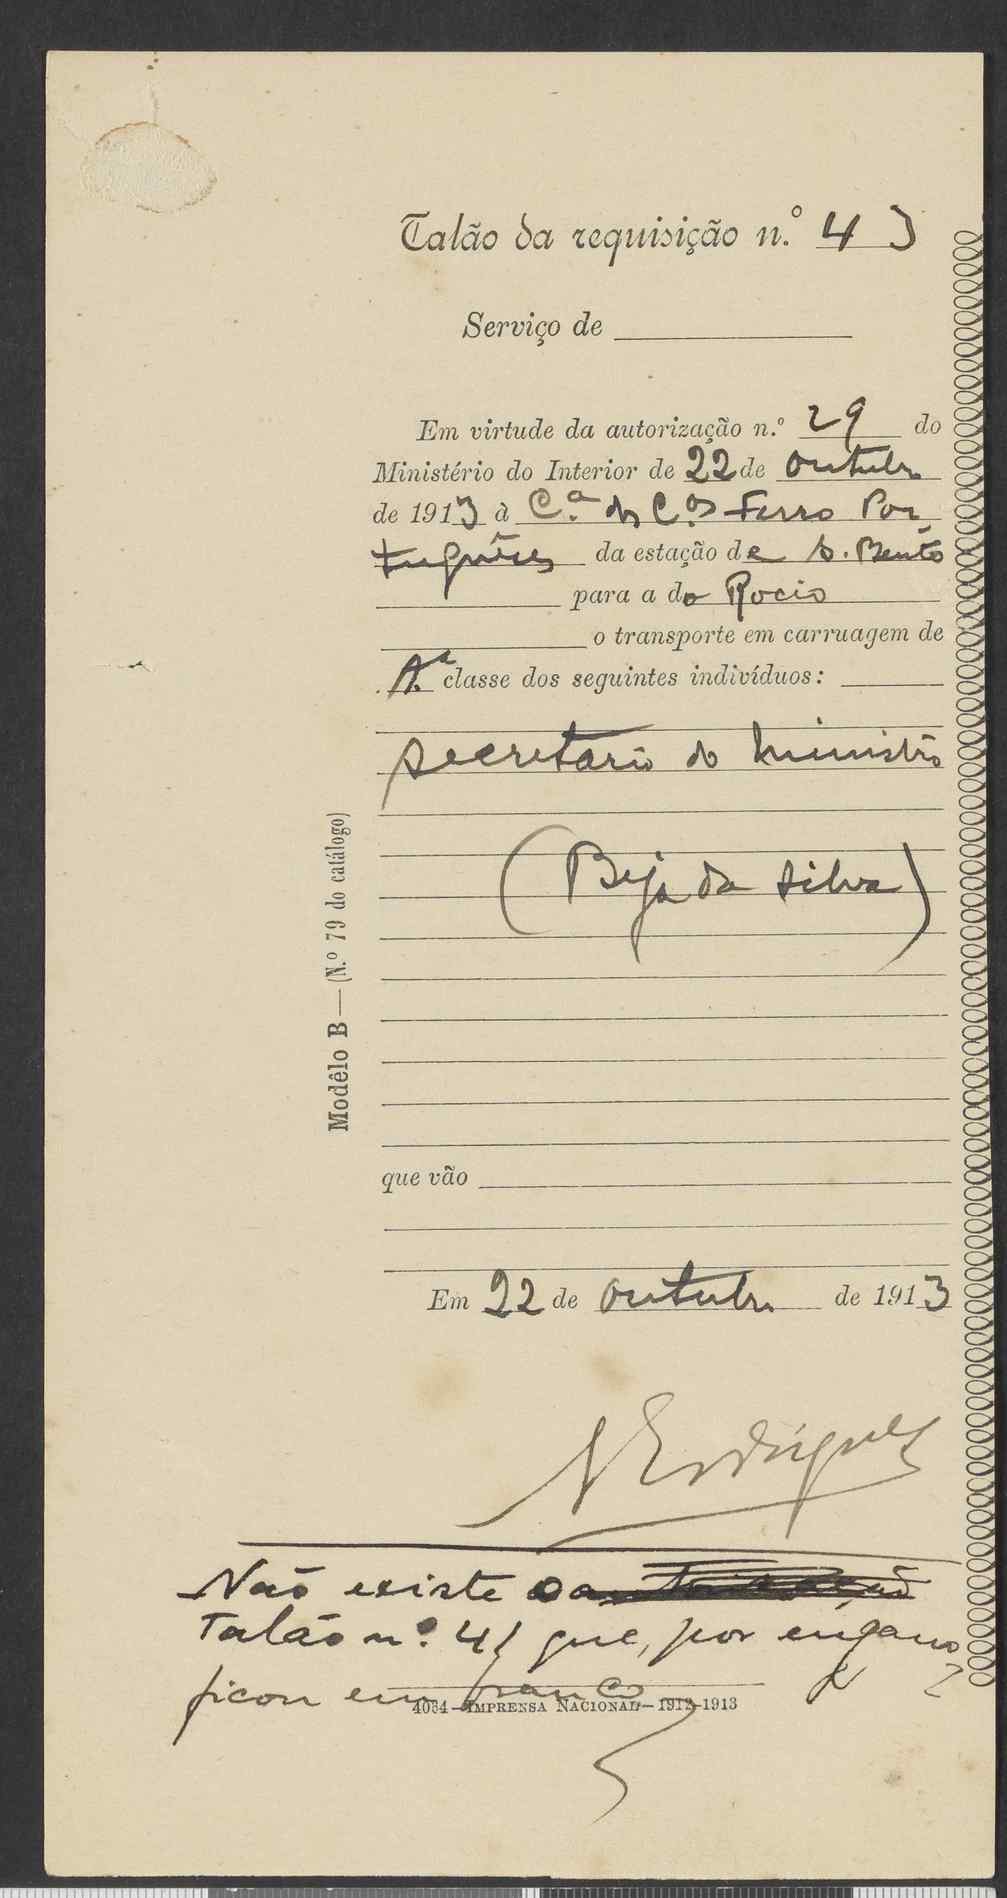 Talão da requisição n.º 43
Serviço de
Em virtude da autorização n.º 29 do
Ministério do Interior de 22 de outubro
de 1913 à C.ª dos C.os Ferro Por
tuguêses da estação de S. Bento
para a do Rocio
o transporte em carruagem de
1.ª classe dos seguintes indivíduos:
secretario do ministro
(Beja da Silva)
Modêlo B — (N.º 79 do catálogo)
que vão
Em 22 de outubro de 1913
Rodrigues
Não existe o
Talão nº. 41 que, por engano,
ficou em branco
4034 — IMPRENSA NACIONAL — 1912-1913